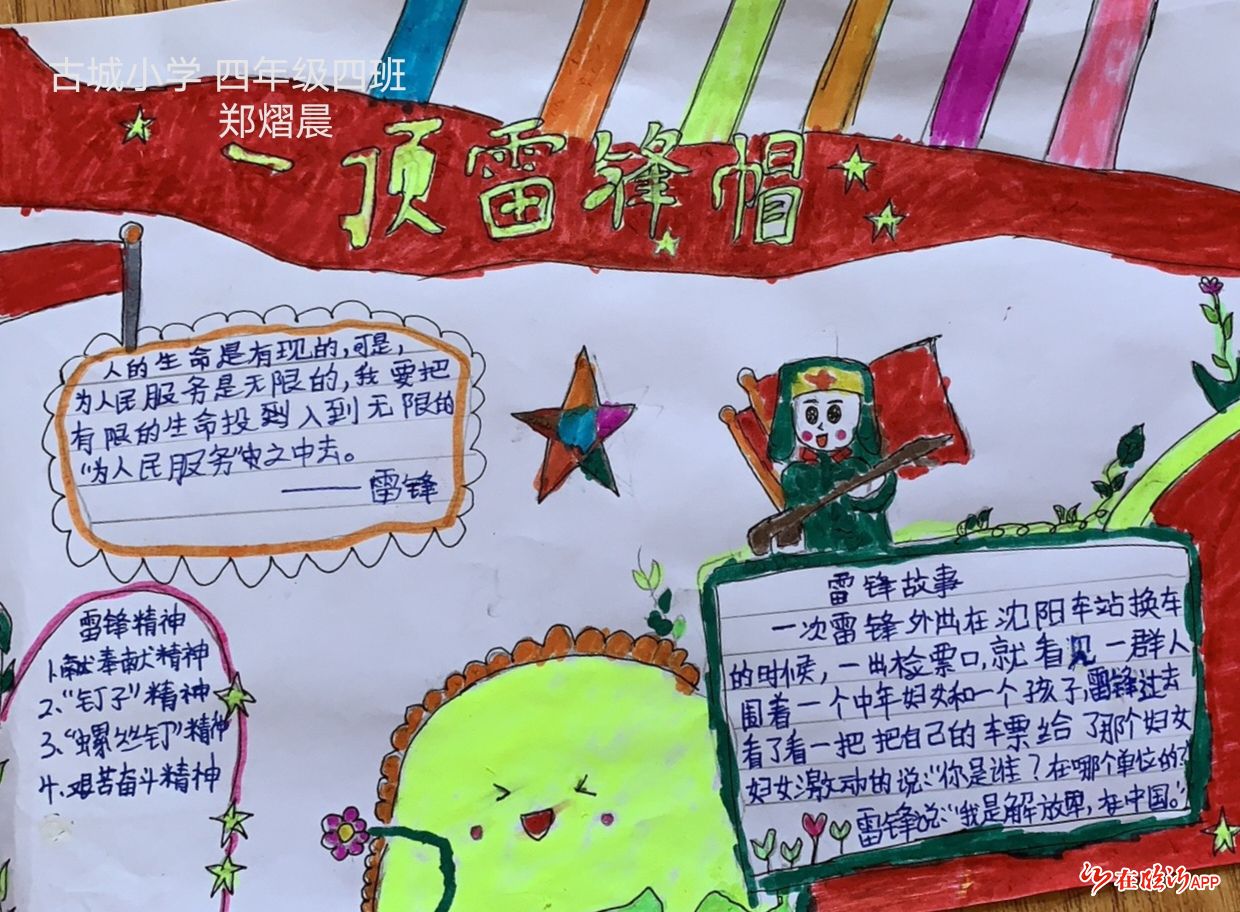 古城小学 四年级四班
郑熠晨
一顶雷锋帽
人的生命是有现的,可是,
为人民服务是无限的,我要把
有限的生命投到入到无限的
“为人民服务”中之中去。
——雷锋
雷锋精神
1.献奉献精神
2、“钉子”精神
3、“螺丝钉”精神
4、艰苦奋斗精神
雷锋故事
一次雷锋外出在沈阳车站换车
的时候,一出检票口,就看见一群人
围着一个中年妇女和一个孩子,雷锋过去
看了看一把把自己的车票给了那个妇女
妇女激动的说:“你是谁?在哪个单位的?
雷锋说:“我是解放军,在中国。”
在临沂APP